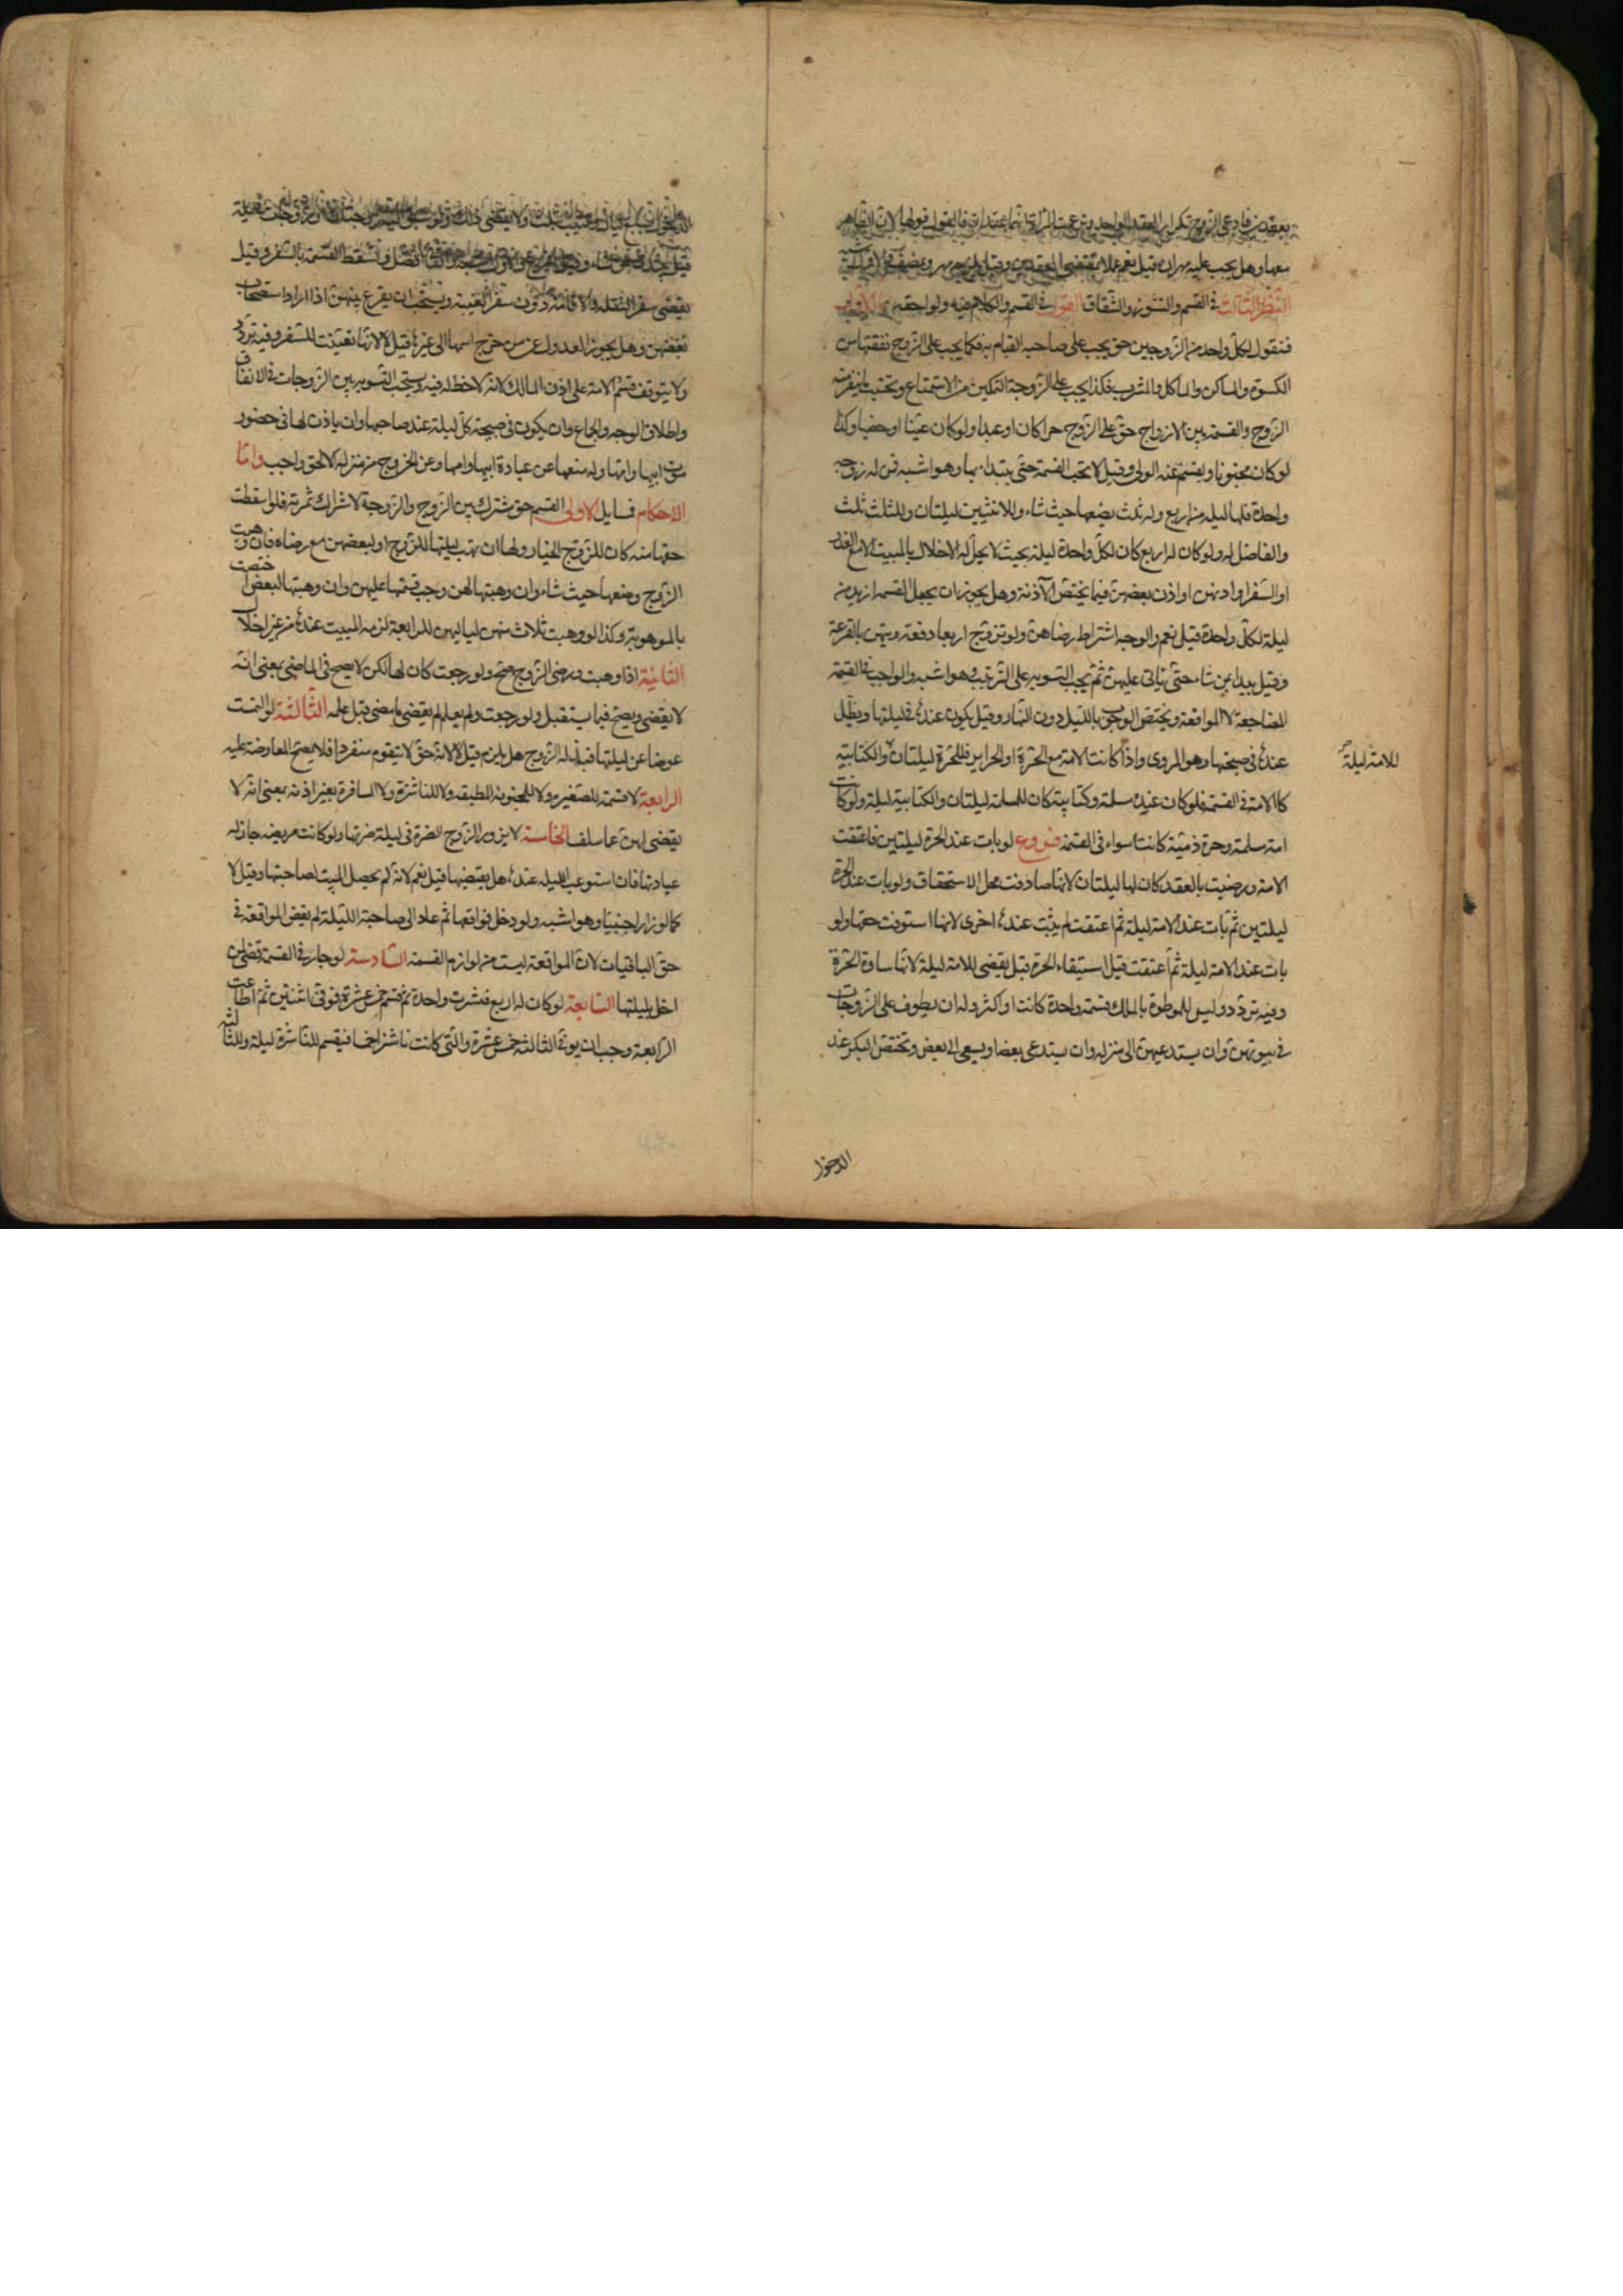 بعقدين فادعى الزوج تكرار العقد الواحد وزعمت المراة انهما عقدان فالقول قولها لان الظاهر
معها وهل يجب عليه مهران قيل نعم عملا بمقتضى العقدين وقيل يلزمه مهر ونصف والاول اشبه
النظر الثالث في القسم والنشوز والشقاق القول في القسم والكلام فيه وفي لواحقه اما الاول
فنقول لكل واحد من الزوجين حق يجب على صاحبه القيام به فكما يجب على الزوج نفقتها من
الكسوة والماكل والمشرب فكذا يجب على الزوجة التمكين من الاستمتاع وتجنب ما ينفر منه
الزوج والقسمة بين الازواج حق على الزوج حرا كان او عبدا ولو كان عنينا او خصيا وكذا
لو كان مجنونا ويقسم عنه الولي وقيل لا تجب القسمة حتى يبتدئ بها وهو اشبه فمن له زوجة
واحدة فلها ليلة من اربع وله ثلث يضعها حيث شاء وللاثنتين ليلتان وللثلث ثلث
والفاضل له ولو كان له اربع كان لكل واحدة ليلة بحيث لا يحل له الاخلال بالمبيت الا مع العذر
او السفر او اذنهن او اذن بعضهن فيما يختص الآذنة وهل يجوز ان يجعل القسمة ازيد من
ليلة لكل واحدة قيل نعم والوجه اشتراط رضاهن ولو تزوج اربعا دفعة رتبهن بالقرعة
وقيل يبدا بمن شاء حتى ياتي عليهن ثم يجب التسوية على الترتيب وهو اشبه والواجب في القسمة
المضاجعة لا المواقعة ويختص الوجوب بالليل دون النهار وقيل يكون عندها في ليلتها ويظل
عندها في صبيحتها وهو المروي واذا كانت الامة مع الحرة او الحراير فللحرة ليلتان والكتابية
للامة ليلة صح
كالامة في القسمة فلو كان عنده مسلمة وكتابية كان للمسلمة ليلتان والكتابية ليلة ولو كانت
امة مسلمة وحرة ذمية كانتا سواء في القسمة فروع لو بات عند الحرة ليلتين فاعتقت
الامة ورضيت بالعقد كان لها ليلتان لانها صادفت محل الاستحقاق ولو بات عند الحرة
ليلتين ثم بات عند الامة ليلة ثم اعتقت لم يبت عندها اخرى لانها استوفت حقها ولو
بات عند الامة ليلة ثم اعتقت قبل استيفاء الحرة قيل يقضي للامة ليلة لانها ساوت الحرة
وفيه تردد وليس للموطوة بالملك قسمة واحدة كانت او اكثر وله ان يطوف على الزوجات
في بيوتهن وان يستدعيهن الى منزله وان يستدعي بعضا ويسعى الى بعض وتختص البكر عند
الدخول
قيل وتسقط القسمة بالسفر وقيل
يقضي سفر النقلة والاقامة دون سفر الغيبة ويستحب ان يقرع بينهن اذا اراد استصحاب
بعضهن وهل يجوز العدول عن من خرج اسمها الى غيرها قيل لا لانها تعينت للسفر وفيه تردد
ولا يتوقف قسم الامة على اذن المالك لانه لا حظ له فيه ويستحب التسوية بين الزوجات في الانفاق
واطلاق الوجه والجماع وان يكون في صبيحة كل ليلة عند صاحبها وان ياذن لها في حضور
موت ابيها وامها وله منعها عن عيادة ابيها وامها وعن الخروج من منزله الا لحق واجب واما
الاحكام فمسايل الاولى القسم حق مشترك بين الزوج والزوجة لاشتراك ثمرته فلو اسقطت
حقها منه كان للزوج الخيار ولها ان تهب ليلتها للزوج او لبعضهن مع رضاه فان وهبت
الزوج وضعها حيث شاء وان وهبتها لهن وجب قسمتها عليهن وان وهبتها لبعض اختصت
بالموهوبة وكذا لو وهبت ثلاث منهن لياليهن للرابعة لزمه المبيت عندها من غير اخلال
الثانية اذا وهبت ورضي الزوج صح ولو رجعت كان لها لكن لا يصح في الماضي بمعنى انه
لا يقضي ويصح فيما يستقبل ولو رجعت ولم يعلم لم يقض ما مضى قبل علمه الثالثة لو التمست
عوضا عن ليلتها فبذله الزوج هل يلزم قيل لا لانه حق لا يتقوم منفردا فلا يصح المعاوضة عليه
الرابعة لا قسمة للصغيرة ولا للمجنونة المطبقة ولا للناشزة ولا المسافرة بغير اذنه بمعنى انه لا
يقضي لهن عما سلف الخامسة لا يزور الزوج الضرة في ليلة ضرتها ولو كانت مريضة جاز له
عيادتها فان استوعب الليلة عندها هل يقضيها قيل نعم لانه لم يحصل المبيت لصاحبتها وقيل لا
كما لو زار اجنبيا وهو اشبه ولو دخل فواقعها ثم عاد الى صاحبة الليلة لم يقض المواقعة في
حق الباقيات لان المواقعة ليست من لوازم القسمة السادسة لو جار في القسمة قضى لمن
اخل بليلتها السابعة لو كان له اربع فنشزت واحدة ثم قسم خمس عشرة فوفى اثنتين ثم اطاعت
الرابعة وجب ان يوفي الثالثة خمس عشرة والتي كانت ناشزا خمسا فيقسم للناشزة ليلة وللثالثة